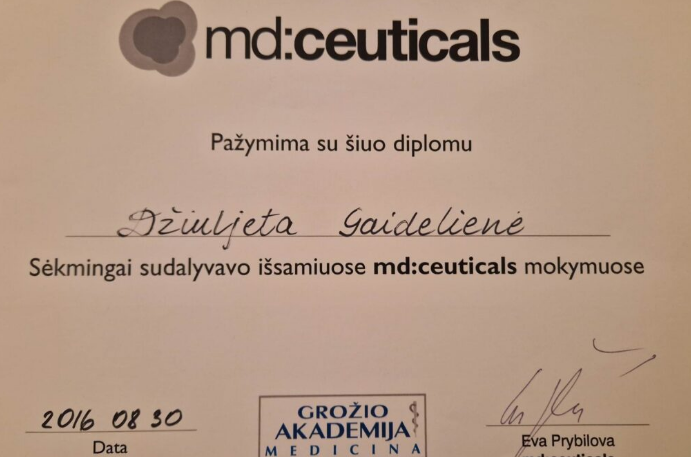 md:ceuticals
Pažymima su šiuo diplomu
Džiuljeta Gaidelienė
Sėkmingai sudalyvavo išsamiuose md:ceuticals mokymuose
2016 08 30
Data
GROŽIO
AKADEMIJA
MEDICINA
Eva Prybilova
md:ceuticals